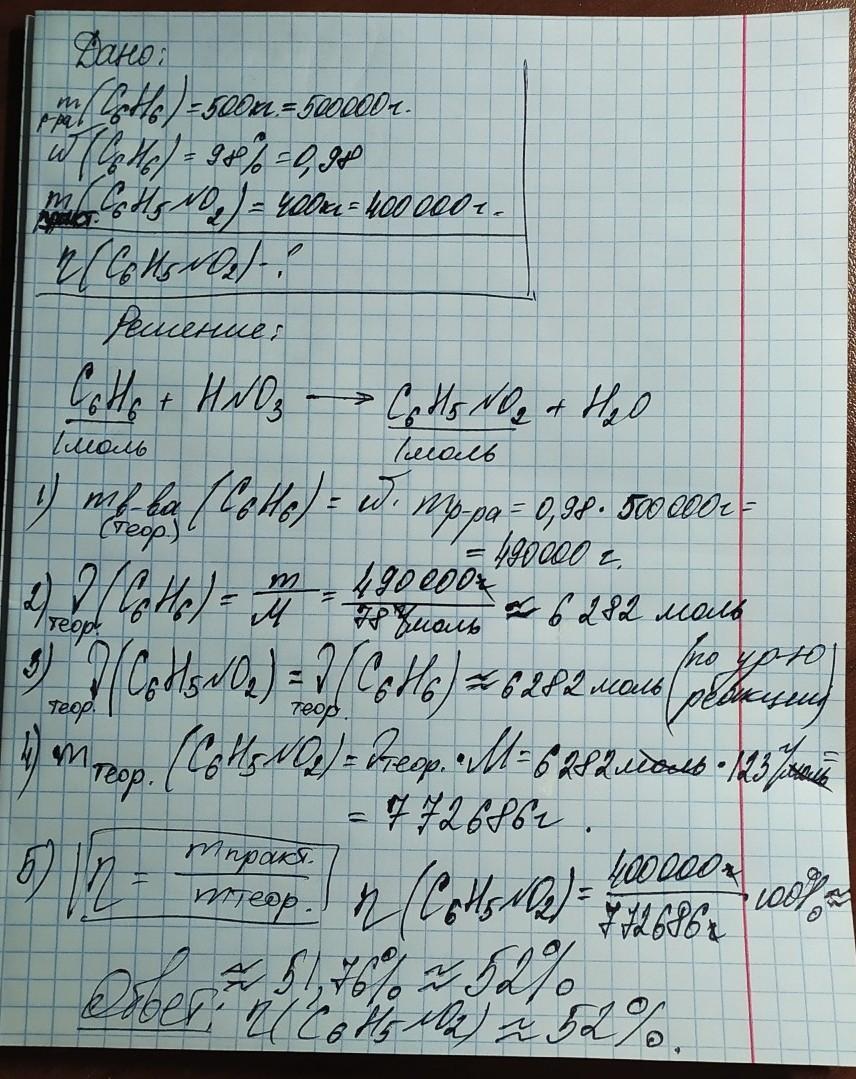 Дано:
m р-ра (C₆H₆) = 500кг. = 500000г.
ω (C₆H₆) = 98% = 0,98
m практ. (C₆H₅NO₂) = 400кг = 400000г.
η (C₆H₅NO₂) - ?
Решение:
C₆H₆ + HNO₃ → C₆H₅NO₂ + H₂O
1моль 1моль
1) m в-ва (теор.) (C₆H₆) = ω · m р-ра = 0,98 · 500000г =
= 490000 г.
2) ν теор. (C₆H₆) = m/M = 490000г/78 г/моль ≈ 6282 моль
3) ν теор. (C₆H₅NO₂) = ν теор. (C₆H₆) ≈ 6282 моль (по ур-ю реакции)
4) m теор. (C₆H₅NO₂) = ν теор. · M = 6282 моль · 123 г/моль =
= 772686г.
5) η = m практ./m теор. η (C₆H₅NO₂) = 400000г/772686г · 100% ≈
≈ 51,76% ≈ 52%
Ответ: η (C₆H₅NO₂) ≈ 52%.